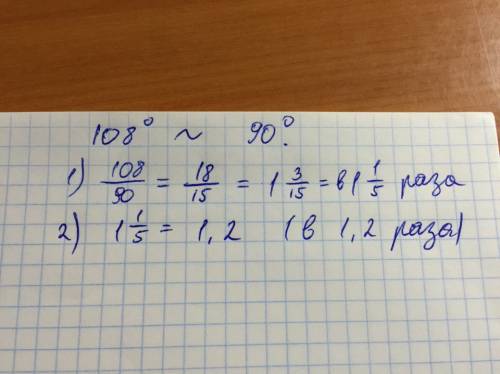 108° ~ 90°.
1) 108/90 = 18/15 = 1 3/15 = в 1 1/5 раза
2) 1 1/5 = 1,2 (в 1,2 раза)